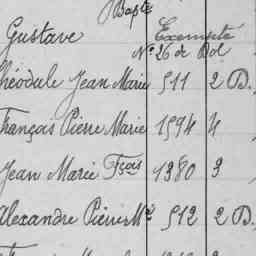 Bapte
Gustave Exempté
No 26 de Dol
héodule Jean Marie 511 2 D.
rançois Pierre Marie 1594 4
Jean Marie Fçois 1380 3
alexandre Pierre Mie 512 2 D.